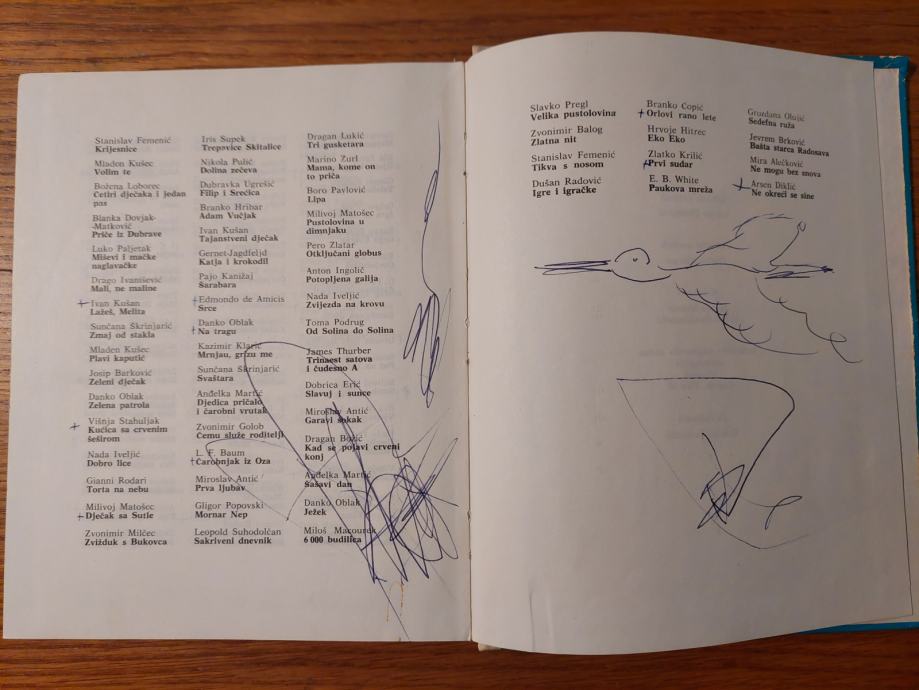 Stanislav Femenić
Krijesnice
Mladen Kušec
Volim te
Božena Loborec
Četiri dječaka i jedan
pas
Blanka Dovjak-
-Matković
Priče iz Dubrave
Luko Paljetak
Miševi i mačke
naglavačke
Drago Ivanišević
Mali, ne maline
+ Ivan Kušan
Lažeš, Melita
Sunčana Škrinjarić
Zmaj od stakla
Mladen Kušec
Plavi kaputić
Josip Barković
Zeleni dječak
Danko Oblak
Zelena patrola
+ Višnja Stahuljak
Kućica sa crvenim
šeširom
Nada Iveljić
Dobro lice
Gianni Rodari
Torta na nebu
Milivoj Matošec
+ Dječak sa Sutle
Zvonimir Milčec
Zvižduk s Bukovca
Iris Supek
Trepavice Skitalice
Nikola Pulić
Dolina zečeva
Dubravka Ugrešić
Filip i Srećica
Branko Hribar
Adam Vučjak
Ivan Kušan
Tajanstveni dječak
Gernet-Jagdfeljd
Katja i krokodil
Pajo Kanižaj
Šarabara
+ Edmondo de Amicis
Srce
Danko Oblak
+ Na tragu
Kazimir Klarić
Mrnjau, grizu me
Sunčana Škrinjarić
Svaštara
Anđelka Martić
Djedica pričalo
i čarobni vrutak
Zvonimir Golob
Čemu služe roditelji
L. F. Baum
+ Čarobnjak iz Oza
Miroslav Antić
Prva ljubav
Gligor Popovski
Mornar Nep
Leopold Suhodolčan
Sakriveni dnevnik
Dragan Lukić
Tri gusketara
Marino Zurl
Mama, kome on
to priča
Boro Pavlović
Lipa
Milivoj Matošec
Pustolovina u
dimnjaku
Pero Zlatar
Otključani globus
Anton Ingolič
Potopljena galija
Nada Iveljić
Zvijezda na krovu
Toma Podrug
Od Solina do Solina
James Thurber
Trinaest satova
i čudesno A
Dobrica Erić
Slavuj i sunce
Miroslav Antić
Garavi sokak
Dragan Božić
Kad se pojavi crveni
konj
Anđelka Martić
Šašavi dan
Danko Oblak
Ježek
Miloš Macourek
6 000 budilica
Slavko Pregl
Velika pustolovina
Zvonimir Balog
Zlatna nit
Stanislav Femenić
Tikva s nosom
Dušan Radović
Igre i igračke
Branko Ćopić
+ Orlovi rano lete
Hrvoje Hitrec
Eko Eko
Zlatko Krilić
+ Prvi sudar
E. B. White
Paukova mreža
Grozdana Olujić
Sedefna ruža
Jevrem Brković
Bašta starca Radosava
Mira Alečković
Ne mogu bez snova
+ Arsen Diklić
Ne okreći se sine